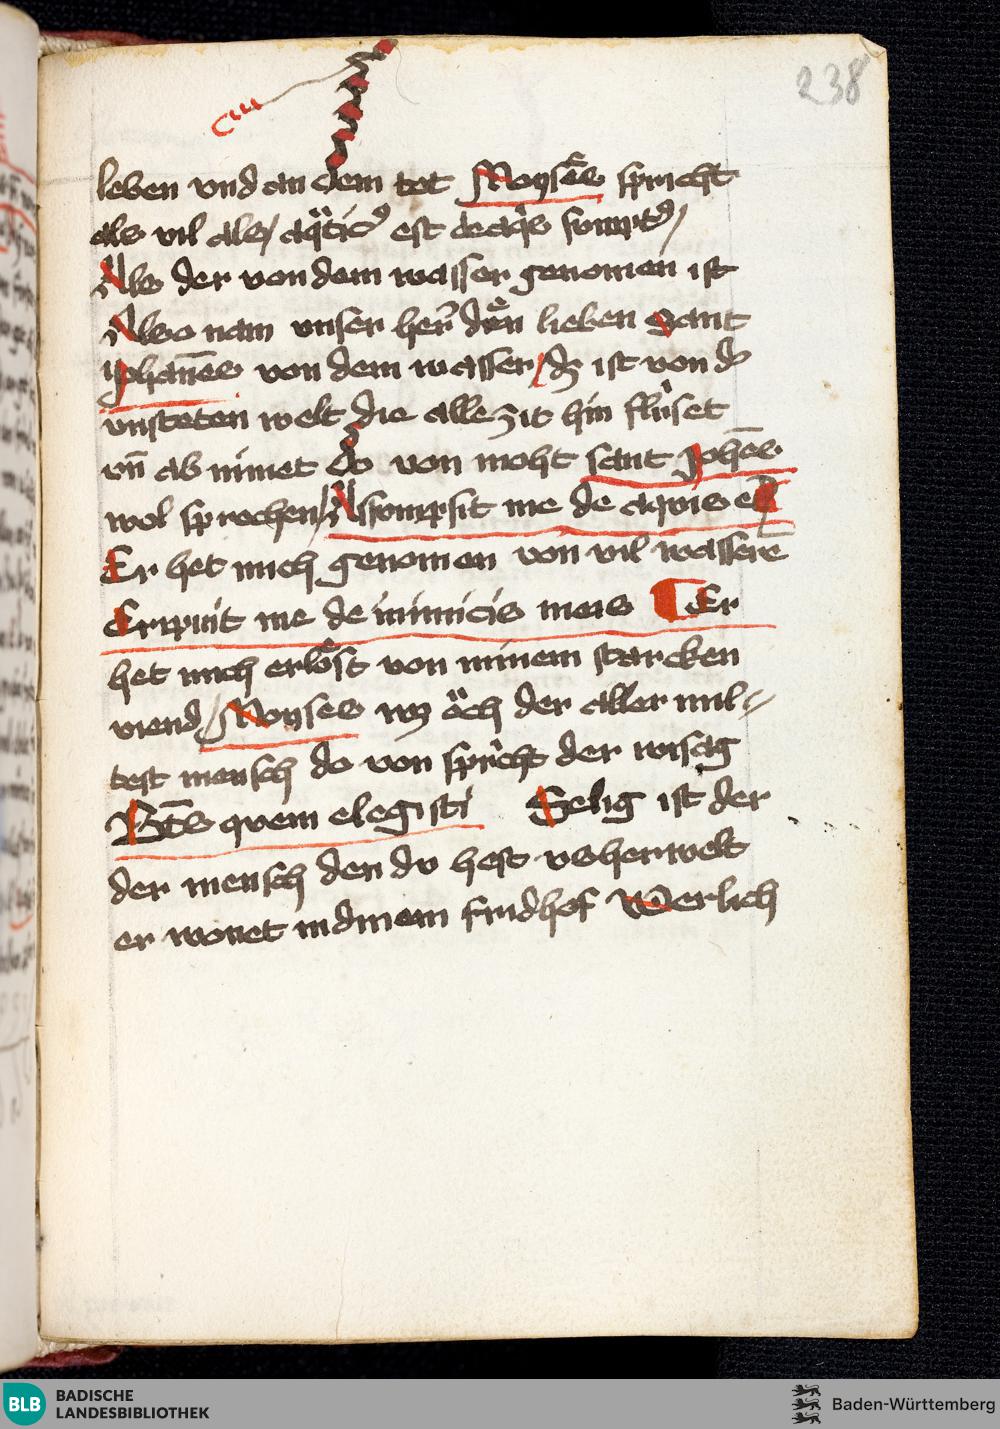 238
leben vnd an dem tot Moyses spricht
als vil als / aq̈tic9 est de aq̈s sumpt9 /
Als der von dem wasser genomen ist
Also nam vnser her̄ den lieben Sant
Johan̄es von dem wasser / dz ist von d
vnsteten welt die alle zit hin fluset
vn̄ ab nimet Do von moht sant Joh̄es
wol sprechen / Assumpsit me de aquis
Er het mich genomen von vil wassere
Eripuit me de inimicis meis Er
het mich erlöst von minem starcken
viend / Moyses wz öch der aller mil-
test mensch do von spricht der wisag
Bt̄s quem elegisti Selig ist der
der mensch den du hest vsherwelt
er wonet in dinem fridhof Werlich
BLB BADISCHE
LANDESBIBLIOTHEK
Baden-Württemberg